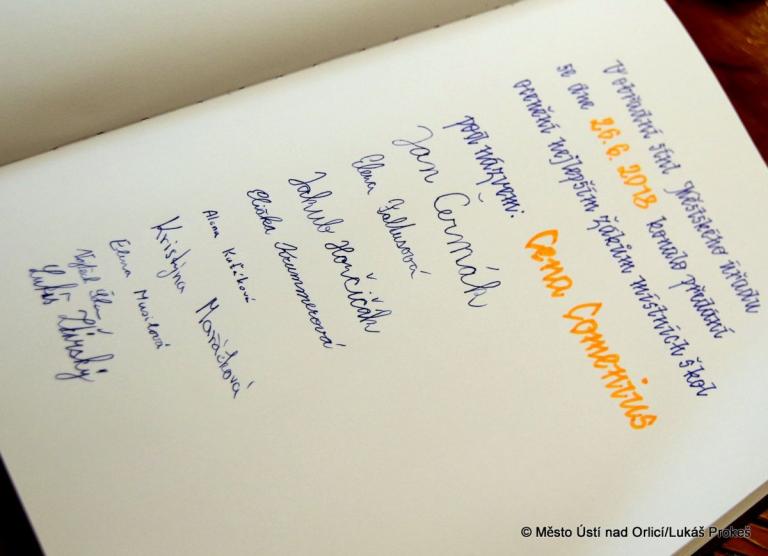 V obřadní síni Městského úřadu
se dne 26.6.2018 konalo předání
ocenění nejlepším žákům místních škol
pod názvem: Cena Comenius
Jan Černák
Elena Falhusová
Jakub Horčičák
Eliška Krummerová
Alena Kubíková
Kristýna Mařátková
Elena Musilová
Vojtěch
Lukáš Zářský
© Město Ústí nad Orlicí/Lukáš Prokeš